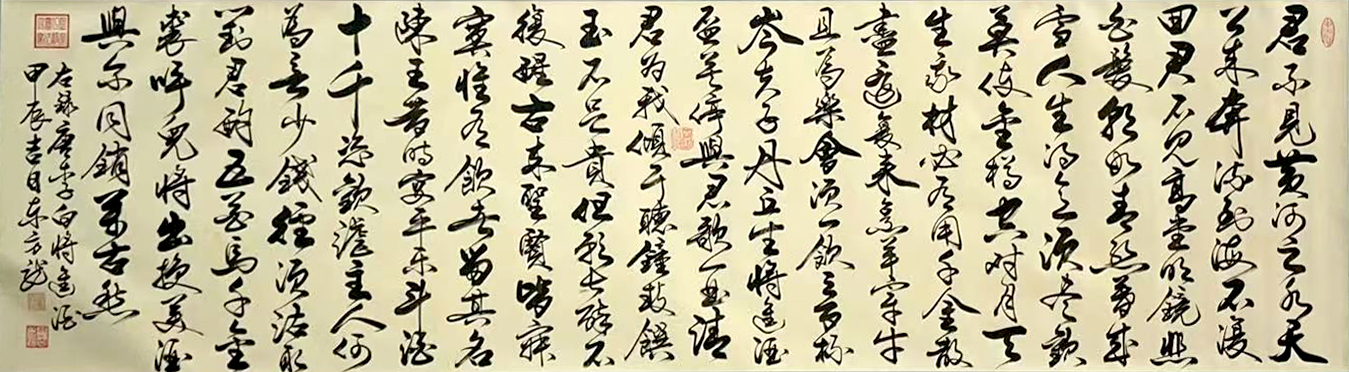 君不見黄河之水天
上来奔流到海不復
回君不見高堂明鏡悲
白髮朝如青絲暮成
雪人生得意須尽歡
莫使金樽空對月天
生我材必有用千金散
盡還復来烹羊宰牛
且為樂會須一飲三百杯
岑夫子丹丘生將進酒
盃莫停與君歌一曲請
君為我傾耳聽鐘鼓饌
玉不足貴但願長醉不
復醒古来聖賢皆寂
寞惟有飲者留其名
陳王昔時宴平樂斗酒
十千恣歡謔主人何
為言少錢徑須沽取
對君酌五花馬千金
裘呼兒將出換美酒
與尔同銷萬古愁
右録唐李白將進酒
甲辰吉日東方